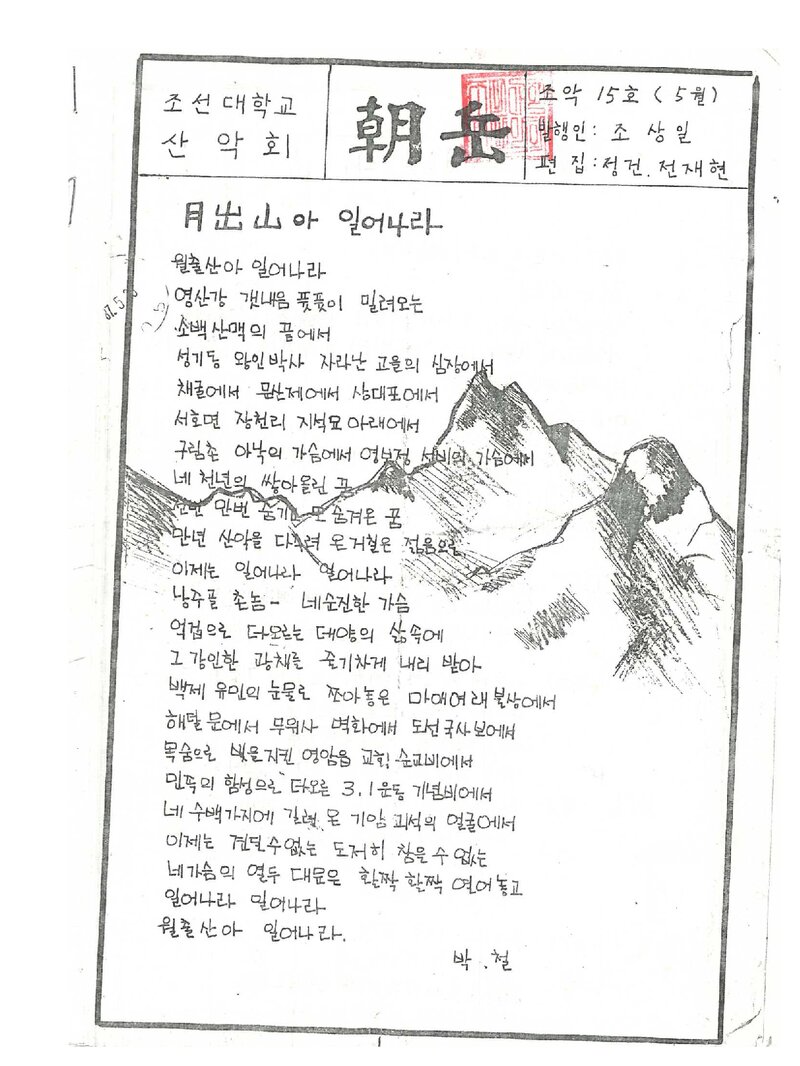 조선대학교
산악회
朝岳
조악 15호 (5월)
발행인: 조상일
편집: 정건. 전재현
月出山아 일어나라
월출산아 일어나라
영산강 갯내음 풋풋이 밀려오는
소백산맥의 끝에서
성기동 왕인박사 자라난 고을의 심장에서
채굴에서 문산제에서 상대포에서
서호면 장천리 지석묘 아래에서
구림촌 아낙의 가슴에서 영보정 선비의 가슴에서
네 천년의 쌓아올린 꿈
만번 숨기고 또 숨겨온 꿈
만년 산악을 다스려 온 거칠은 젊음으로
이제는 일어나라 일어나라
낭주골 촌놈- 네 순진한 가슴
억겁으로 타오르는 태양의 삶속에
그 강인한 광채를 줄기차게 내리 받아
백제 유민의 눈물로 쪼아놓은 마애여래불상에서
해탈문에서 무위사 벽화에서 도선국사비에서
목숨으로 빛을 지킨 영암읍 교회 순교비에서
민족의 함성으로 타오른 3.1운동 기념비에서
네 수백가지에 길러 온 기암 괴석의 얼굴에서
이제는 견딜수없는 도저히 참을 수 없는
네가슴의 열두 대문은 활짝 활짝 열어놓고
일어나라 일어나라
월출산아 일어나라.
박. 철